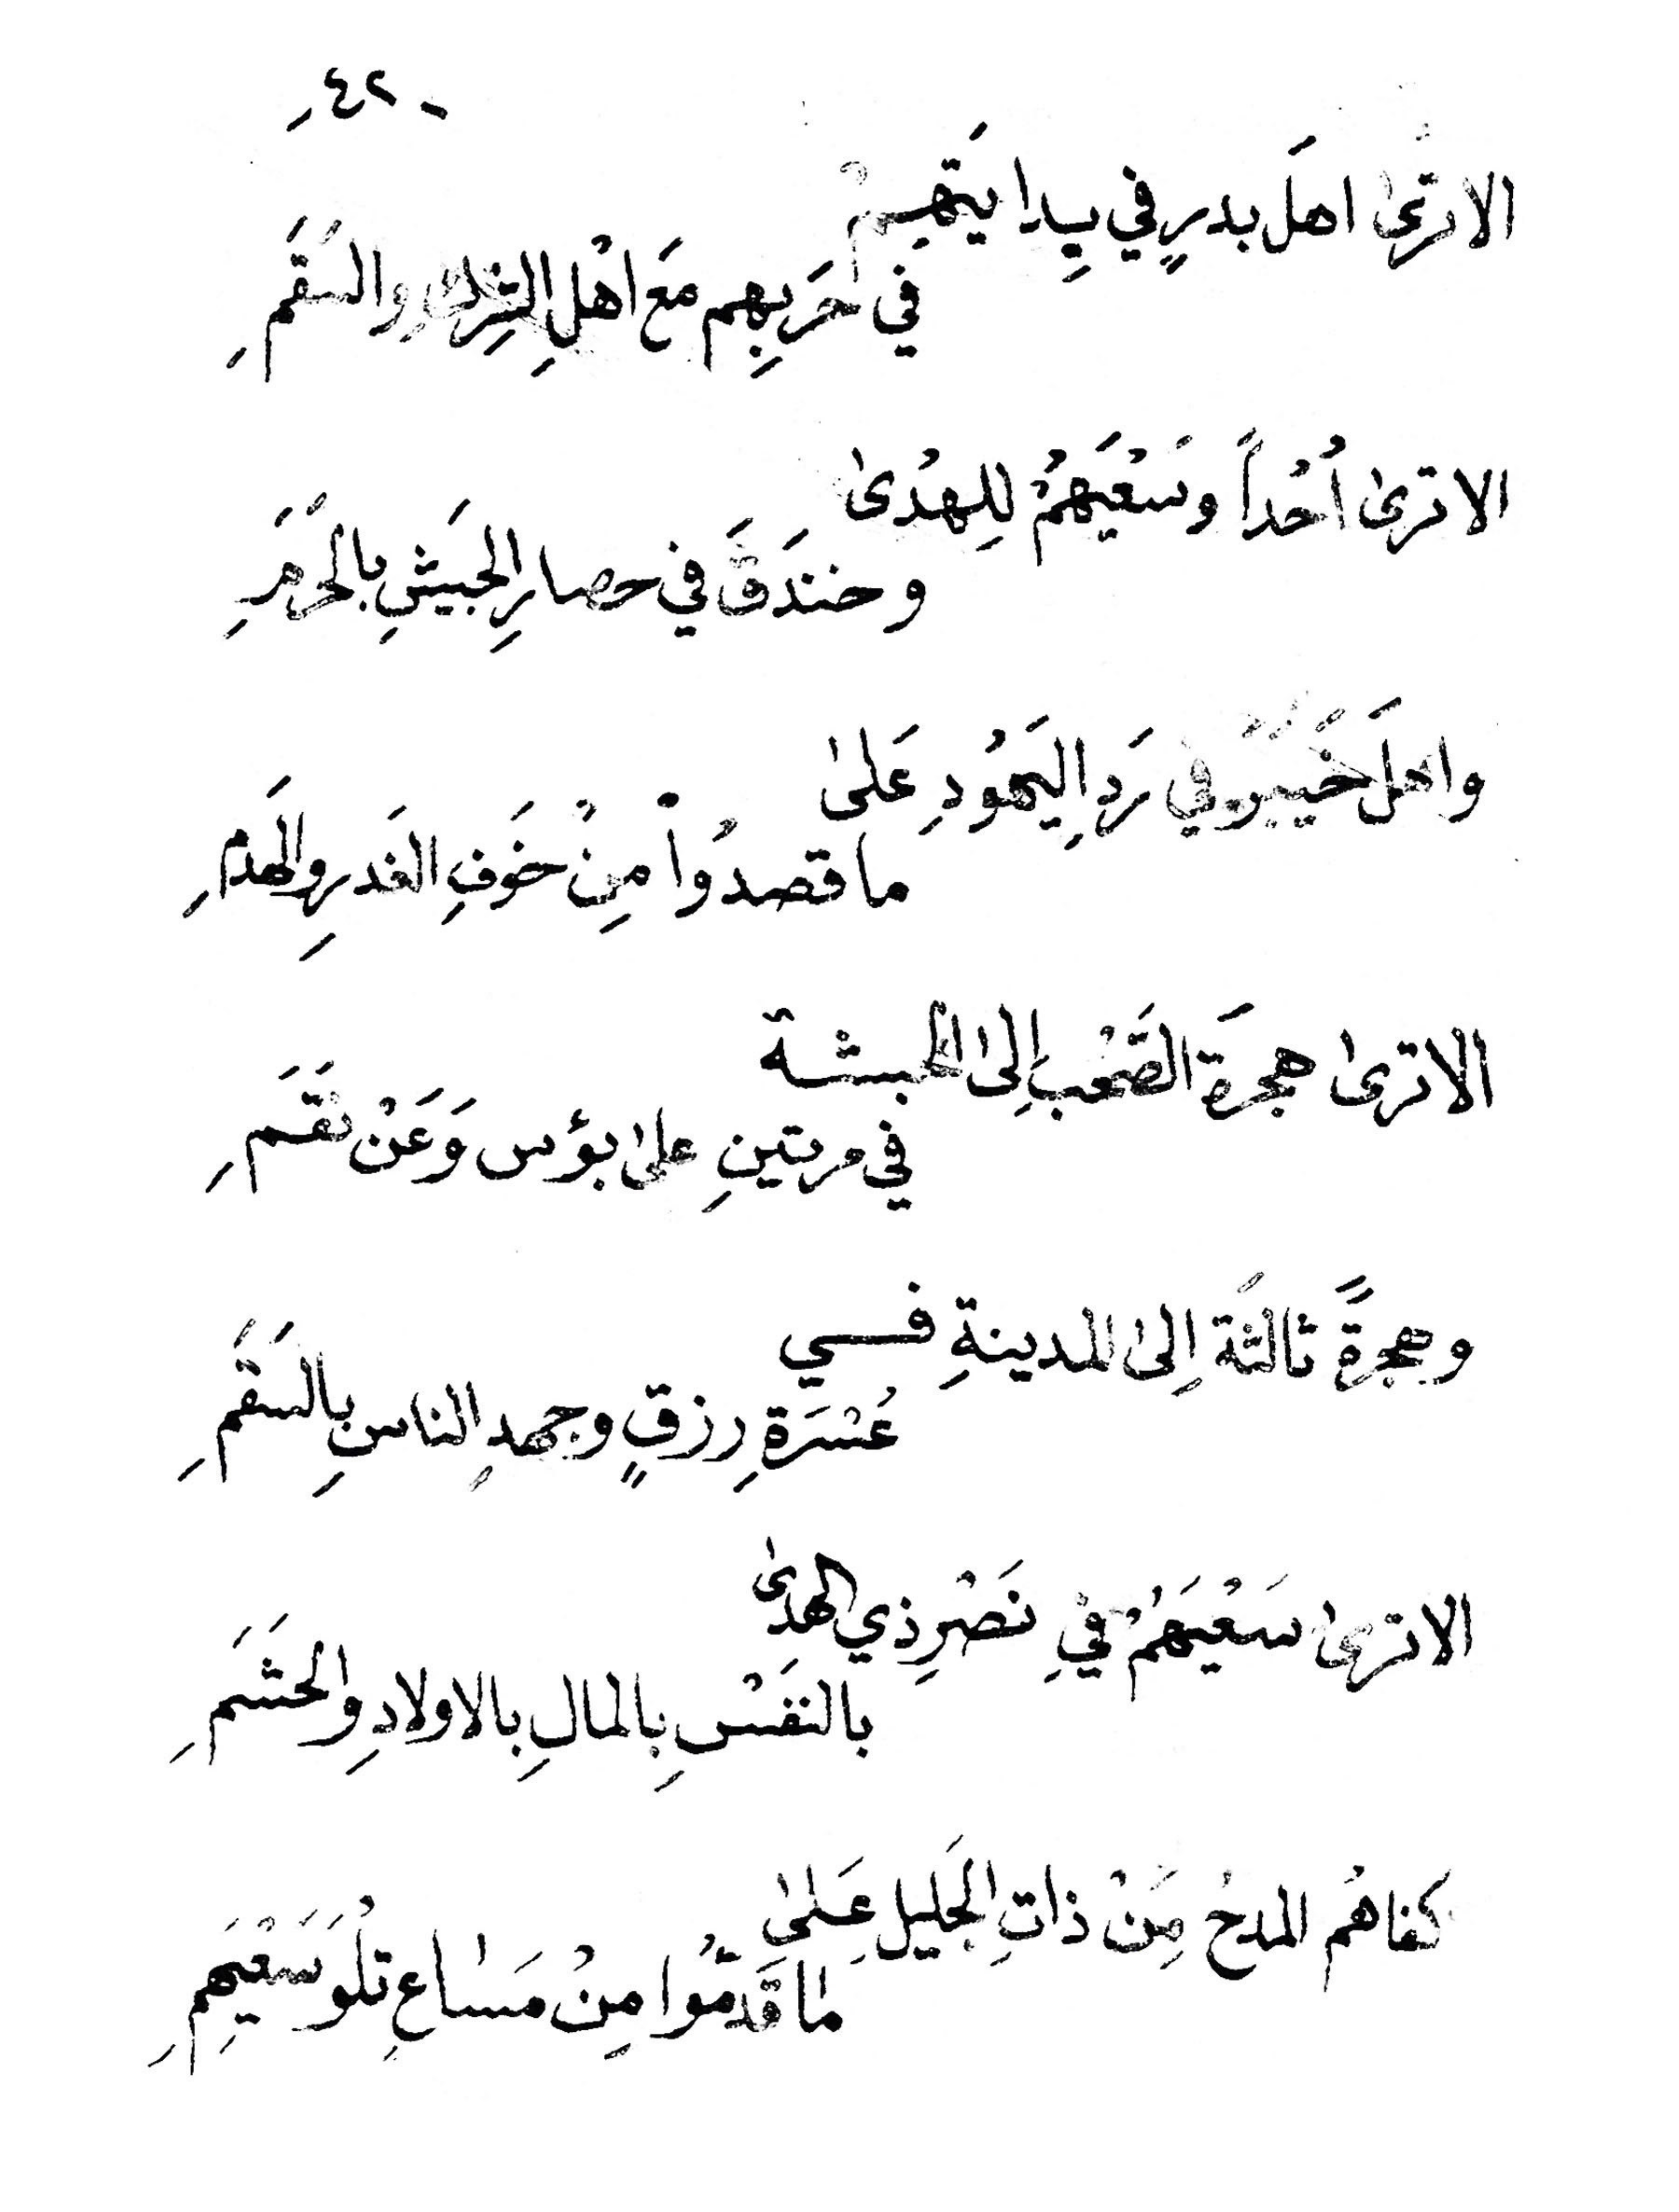 - ٤٢ -
الا ترىٰ اهلَ بدرٍ في بِدايَتهِمْ
في حَربِهِم مَع اهْلِ الشِركِ والسَقَمِ
الا ترىٰ اُحُداً وسَعْيَهمُ لِلهُدىٰ
وخندَقَ في حصارِ الجَيشِ بالحَرَمِ
واهلَ خَيبَرَ في رَدِ اليَهُودِ عَلىٰ
ما قصدُواْ مِنْ خَوفِ الغَدرِ والهَدمِ
الا ترىٰ هجرَة الصَّحْبِ اِلىٰ الحبشة
في مرتينِ علىٰ بؤس وَعَنْ نقَمَِ
وهجرةً ثالثَة اِلىٰ المدينةِ فــي
عُسْرَةِ رزقٍ وجهدِ الناسِ بِالسَقَمِ
الا ترىٰ سَعْيَهَمُ في نَصْرِ ذي الهدىٰ
بالنفَسْ بِالمالِ بالاولادِ والحَشَمَِ
كفاهُم المدحُ مِنْ ذاتِ الجَليلِ عَلىٰ
ما قَدمُوا مِنْ مَسٰاعِ تلْوَ سَعْيَهِمِ